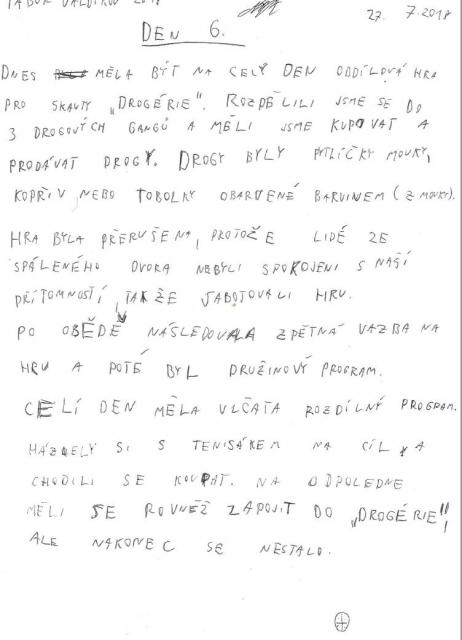 TÁBOR VALDÍKOV 2018
27. 7.2018
DEN 6.
DNES MĚLA BÝT NA CELÝ DEN ODDÍLOVÁ HRA
PRO SKAUTY „DROGÉRIE". ROZDĚLILI JSME SE DO
3 DROGOVÝCH GANGŮ A MĚLI JSME KUPOVAT A
PRODÁVAT DROGY. DROGY BYLY PYTLÍČKY MOUKY,
KOPŘIV NEBO TOBOLKY OBARVENÉ BARVINEM (Z MOUKY).
HRA BYLA PŘERUŠENA, PROTOŽE LIDÉ ZE
SPÁLENÉHO DVORA NEBYLI SPOKOJENI S NAŠÍ
PŘÍTOMNOSTÍ, TAKŽE SABOTOVALI HRU.
PO OBĚDĚ NÁSLEDOVALA ZPĚTNÁ VAZBA NA
HRU A POTÉ BYL DRUŽINOVÝ PROGRAM.
CELÍ DEN MĚLA VLČATA ROZDÍLNÝ PROGRAM.
HÁZELY SI S TENISÁKEM NA CÍL A
CHODILI SE KOUPAT. NA ODPOLEDNE
MĚLI SE ROVNĚŽ ZAPOJIT DO „DROGÉRIE",
ALE NAKONEC SE NESTALO.